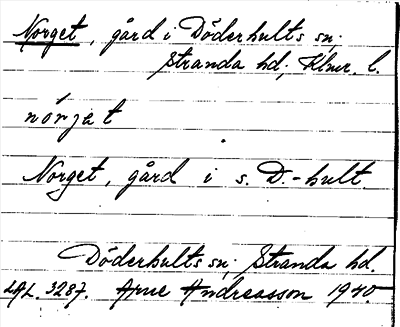 Norget, gård i Döderhults sn;
Stranda hd; Klmr. l.
nórjet
Norget, gård i s. D.-hult.
Döderhults sn; Stranda hd.
ULMA 3287. Arne Andreasson 1940